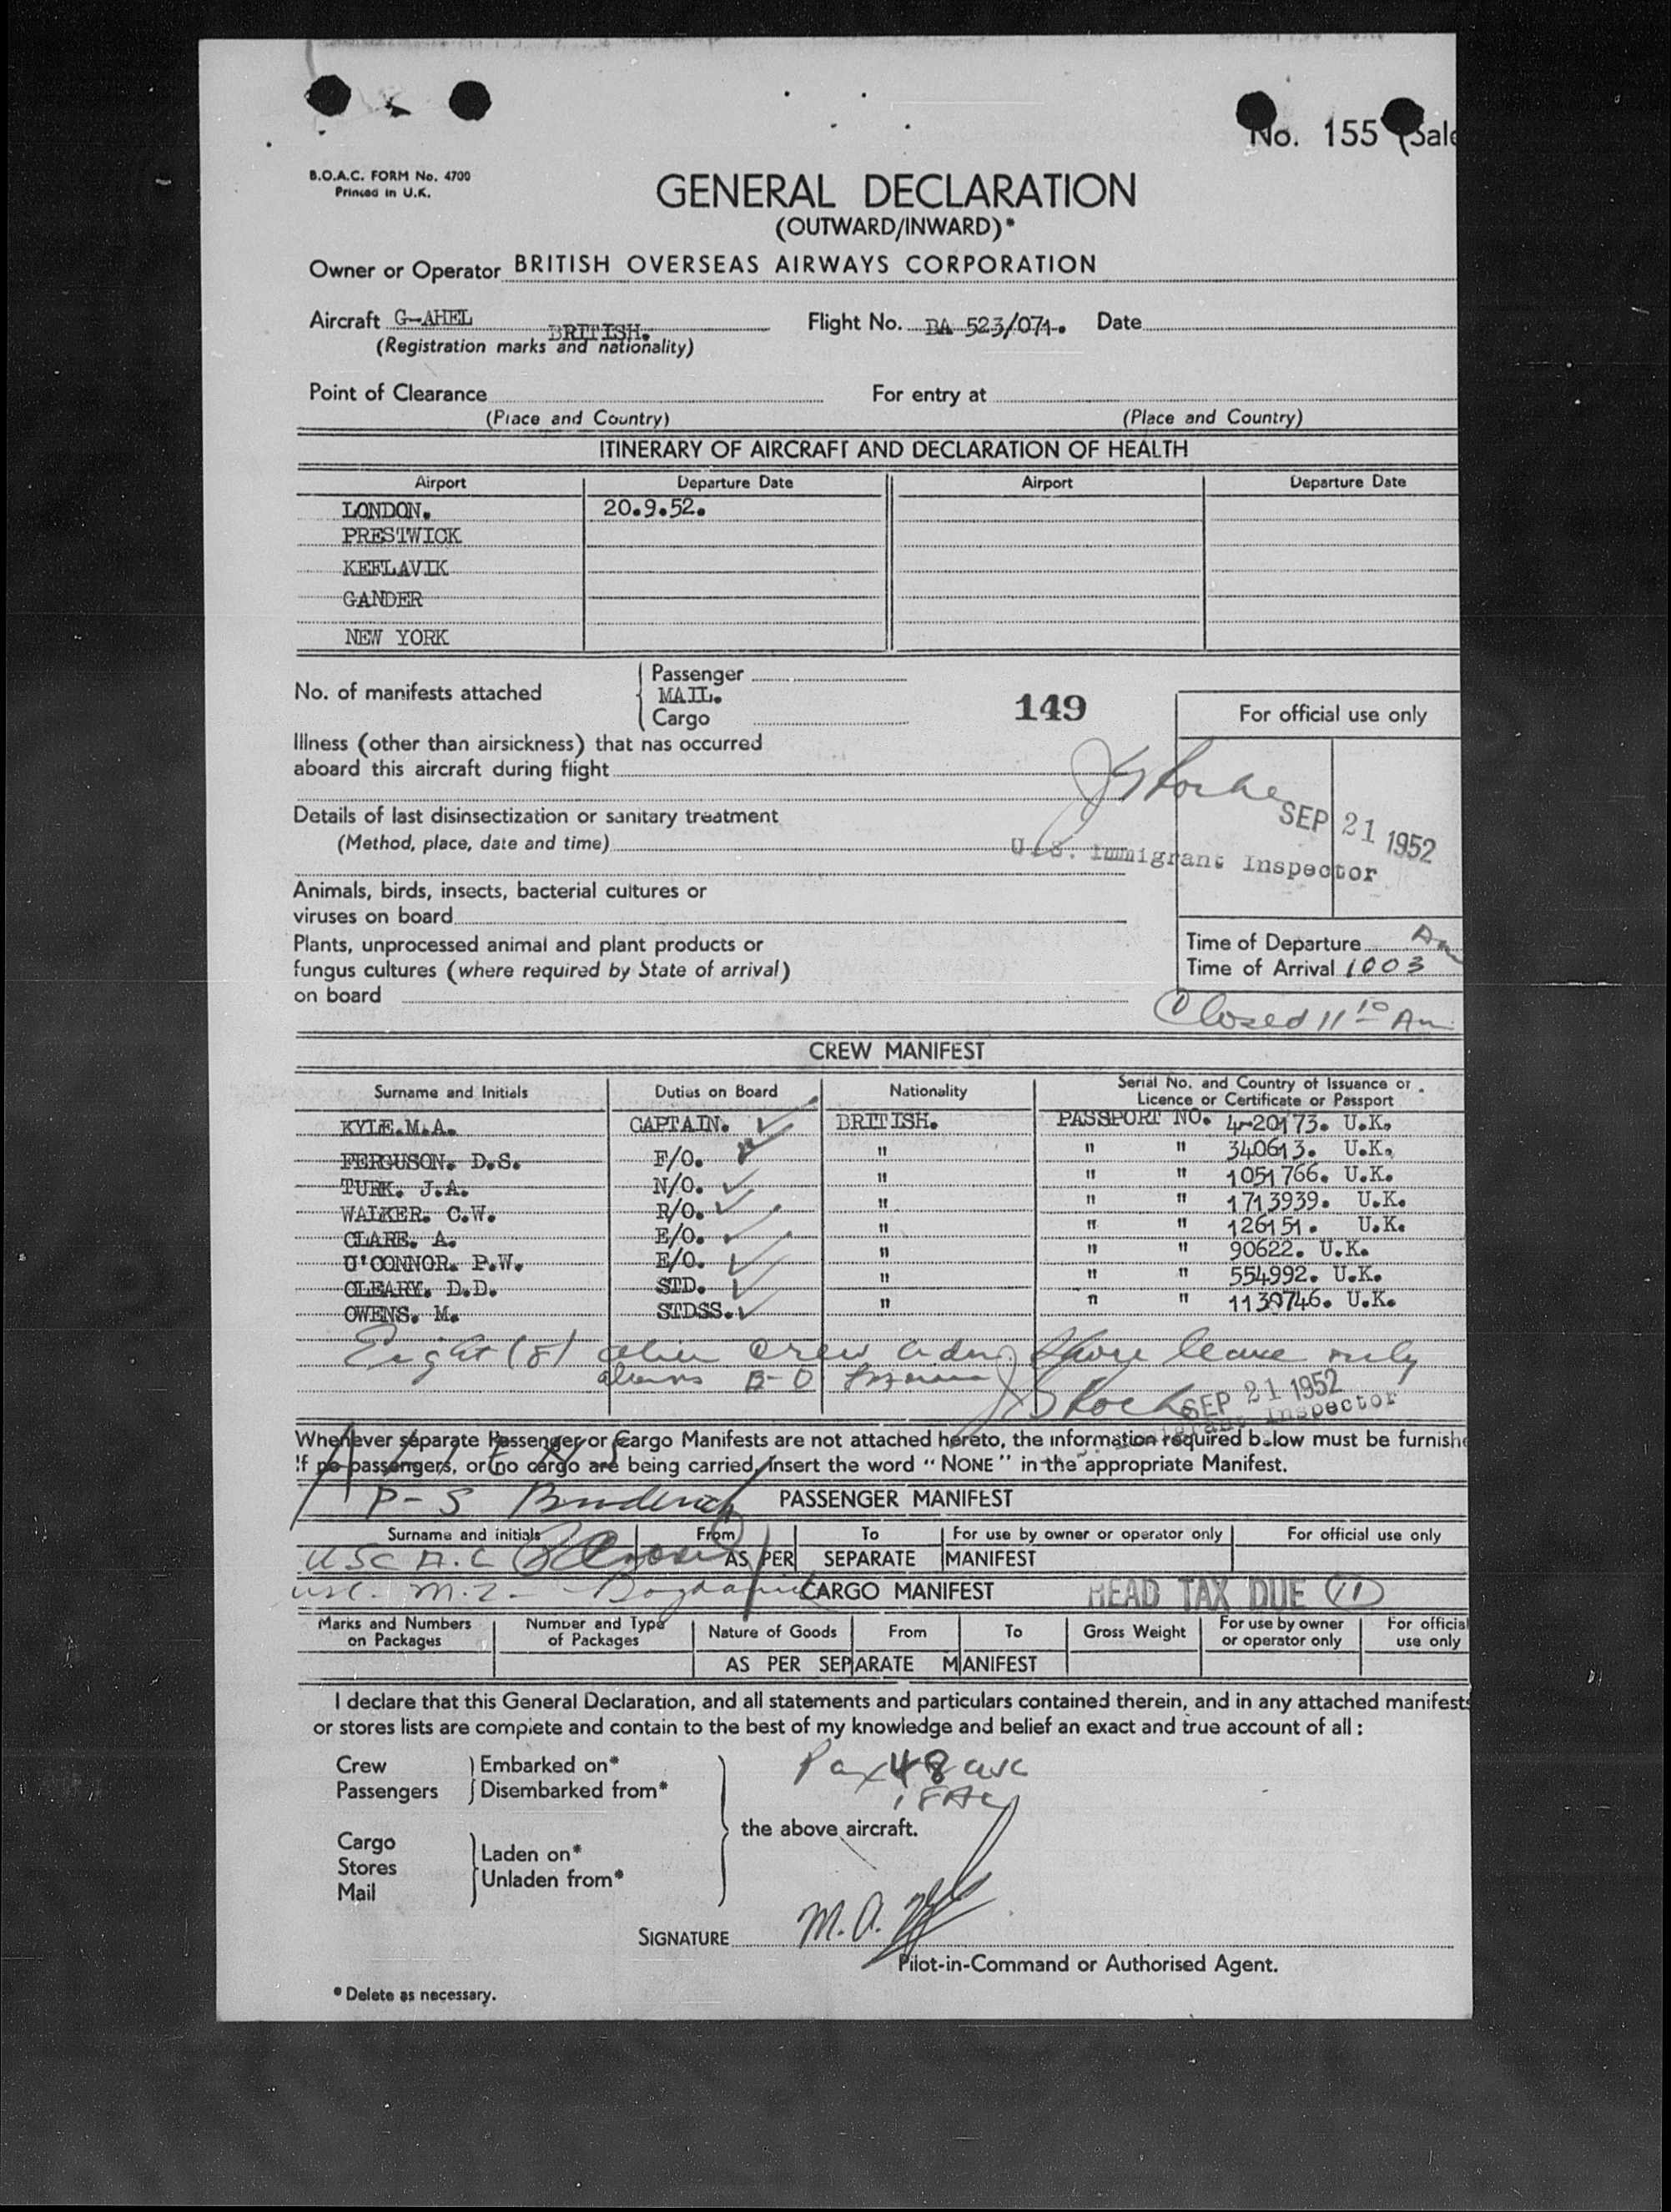 No. 155 (Sale
B.O.A.C. FORM No. 4700
Printed in U.K.
GENERAL DECLARATION
(OUTWARD/INWARD)*
Owner or Operator BRITISH OVERSEAS AIRWAYS CORPORATION
Aircraft G-AHEL BRITISH. Flight No. BA 523/071. Date
(Registration marks and nationality)
Point of Clearance For entry at
(Place and Country) (Place and Country)
ITINERARY OF AIRCRAFT AND DECLARATION OF HEALTH
Airport Departure Date Airport Departure Date
LONDON. 20.9.52.
PRESTWICK
KEFLAVIK
GANDER
NEW YORK
No. of manifests attached
Passenger
MAIL.
Cargo
149
For official use only
Illness (other than airsickness) that has occurred
aboard this aircraft during flight
Details of last disinsectization or sanitary treatment
(Method, place, date and time)
SEP 21 1952
U.S. Immigrant Inspector
Animals, birds, insects, bacterial cultures or
viruses on board
Plants, unprocessed animal and plant products or
fungus cultures (where required by State of arrival)
on board
Time of Departure Am
Time of Arrival 1003
Closed 11 10 Am
CREW MANIFEST
Surname and Initials Duties on Board Nationality Serial No. and Country of Issuance or
Licence or Certificate or Passport
KYLE.M.A. CAPTAIN. BRITISH. PASSPORT NO. 4-20173. U.K.
FERGUSON. D.S. F/O. " " " 340613. U.K.
TURK. J.A. N/O. " " " 1051766. U.K.
WALKER. C.W. R/O. " " " 1713939. U.K.
CLARE. A. E/O. " " " 126151. U.K.
O'CONNOR. P.W. E/O. " " " 90622. U.K.
OLEARY. D.D. STD. " " " 554992. U.K.
OWENS. M. STDSS. " " " 1130746. U.K.
Eight (8) alien crew adm shore leave only
SEP 21 1952
Inspector
Whenever separate Passenger or Cargo Manifests are not attached hereto, the information required below must be furnishe
If no passengers, or no cargo are being carried, insert the word "NONE" in the appropriate Manifest.
P-S
PASSENGER MANIFEST
Surname and initials From To For use by owner or operator only For official use only
AS PER SEPARATE MANIFEST
CARGO MANIFEST
HEAD TAX DUE 11
Marks and Numbers on Packages Number and Type of Packages Nature of Goods From To Gross Weight For use by owner or operator only For official use only
AS PER SEPARATE MANIFEST
I declare that this General Declaration, and all statements and particulars contained therein, and in any attached manifests
or stores lists are complete and contain to the best of my knowledge and belief an exact and true account of all :
Crew Embarked on*
Passengers Disembarked from*
Pax 48
the above aircraft.
Cargo
Stores
Mail
Laden on*
Unladen from*
SIGNATURE M.A.
Pilot-in-Command or Authorised Agent.
* Delete as necessary.